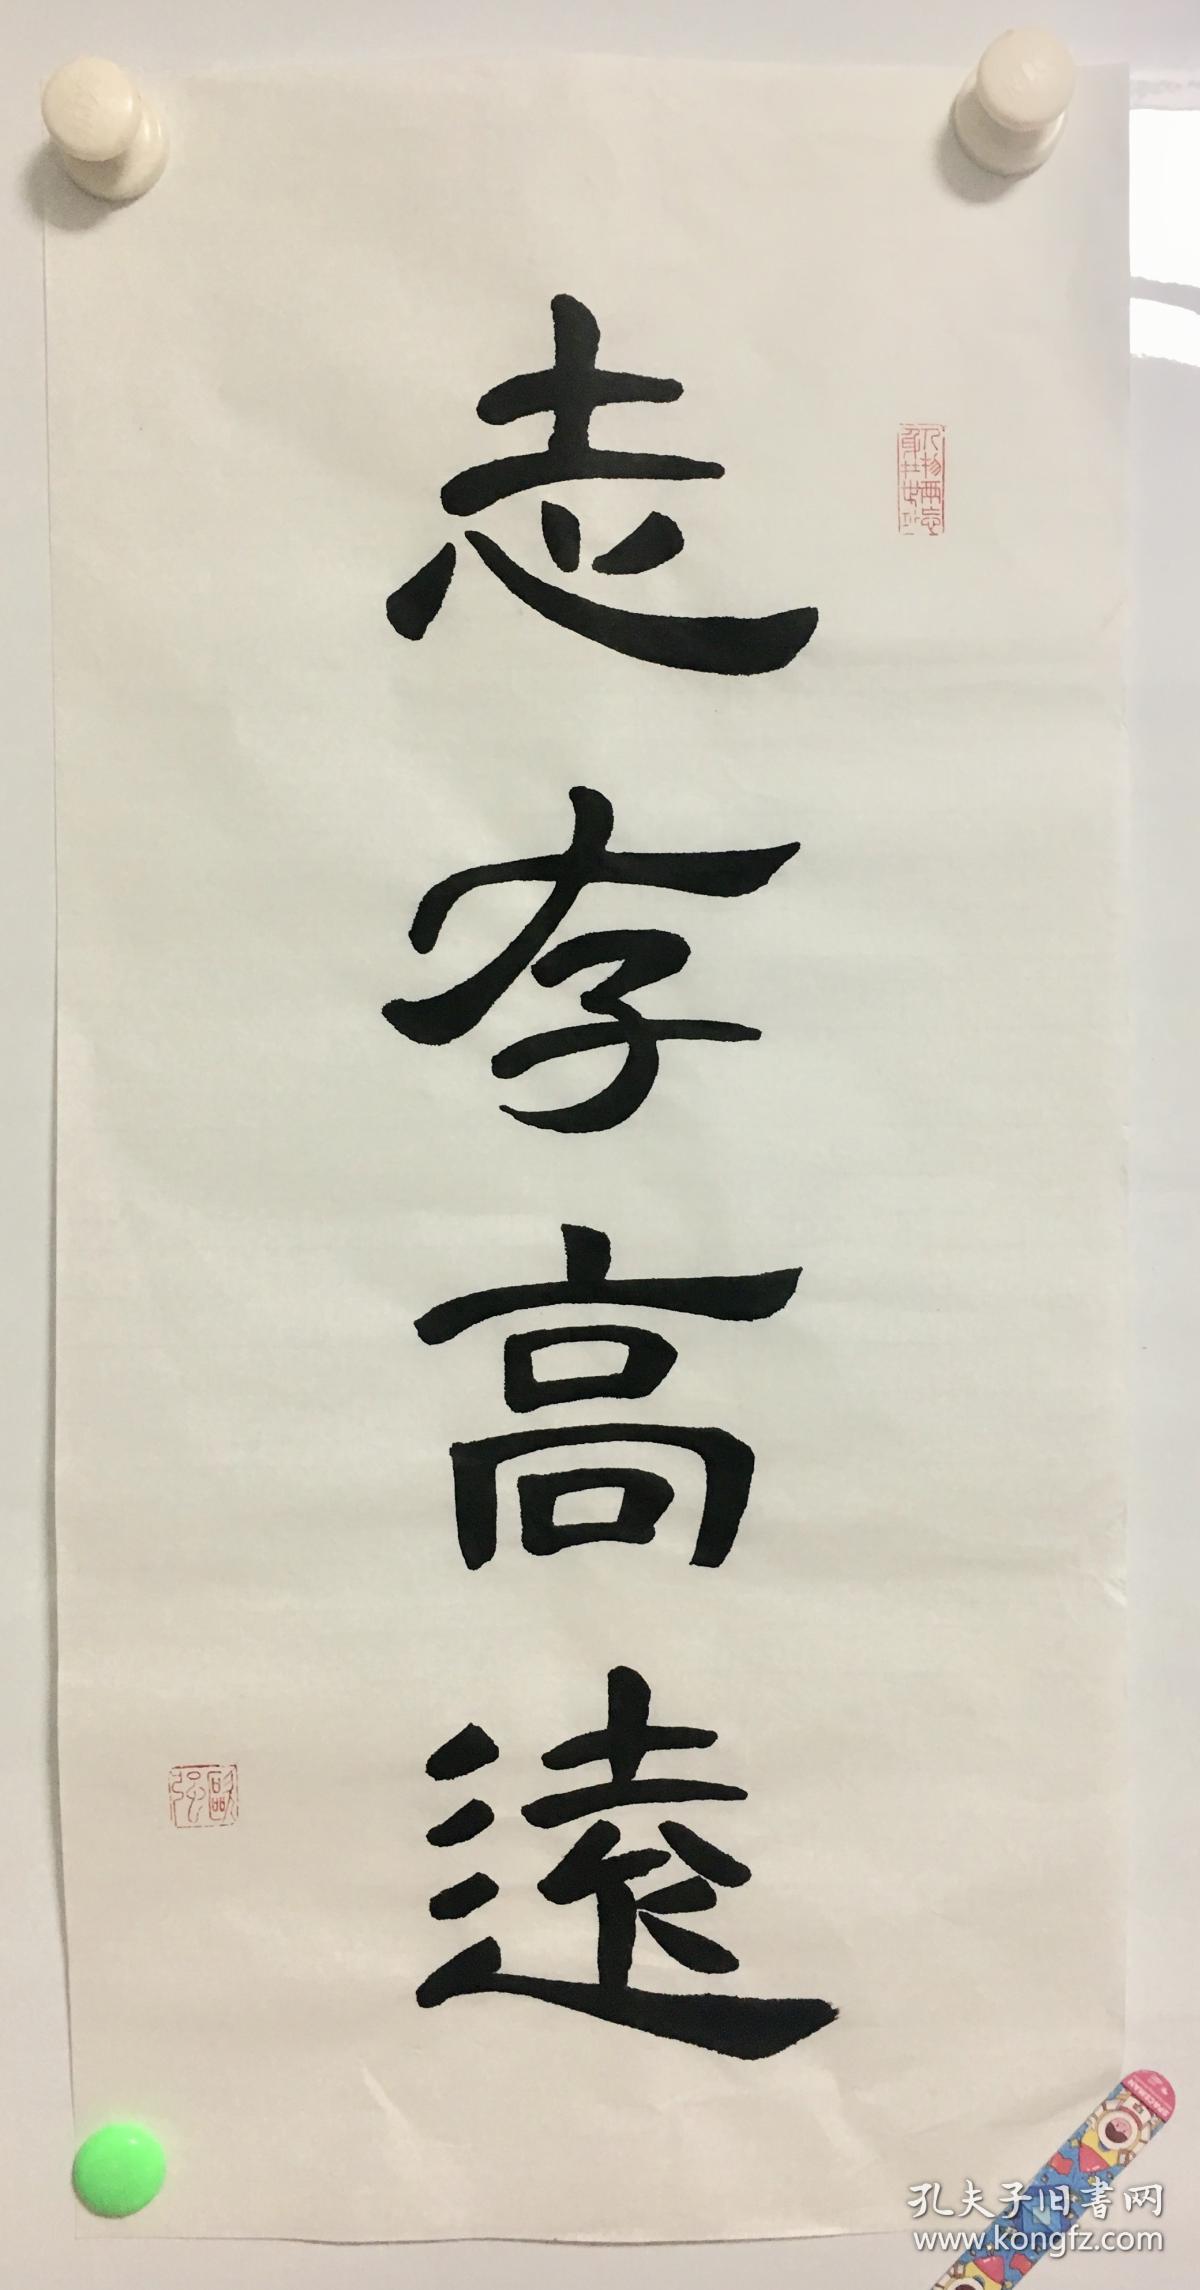 志存高遠
孔夫子旧書网
www.kongfz.com